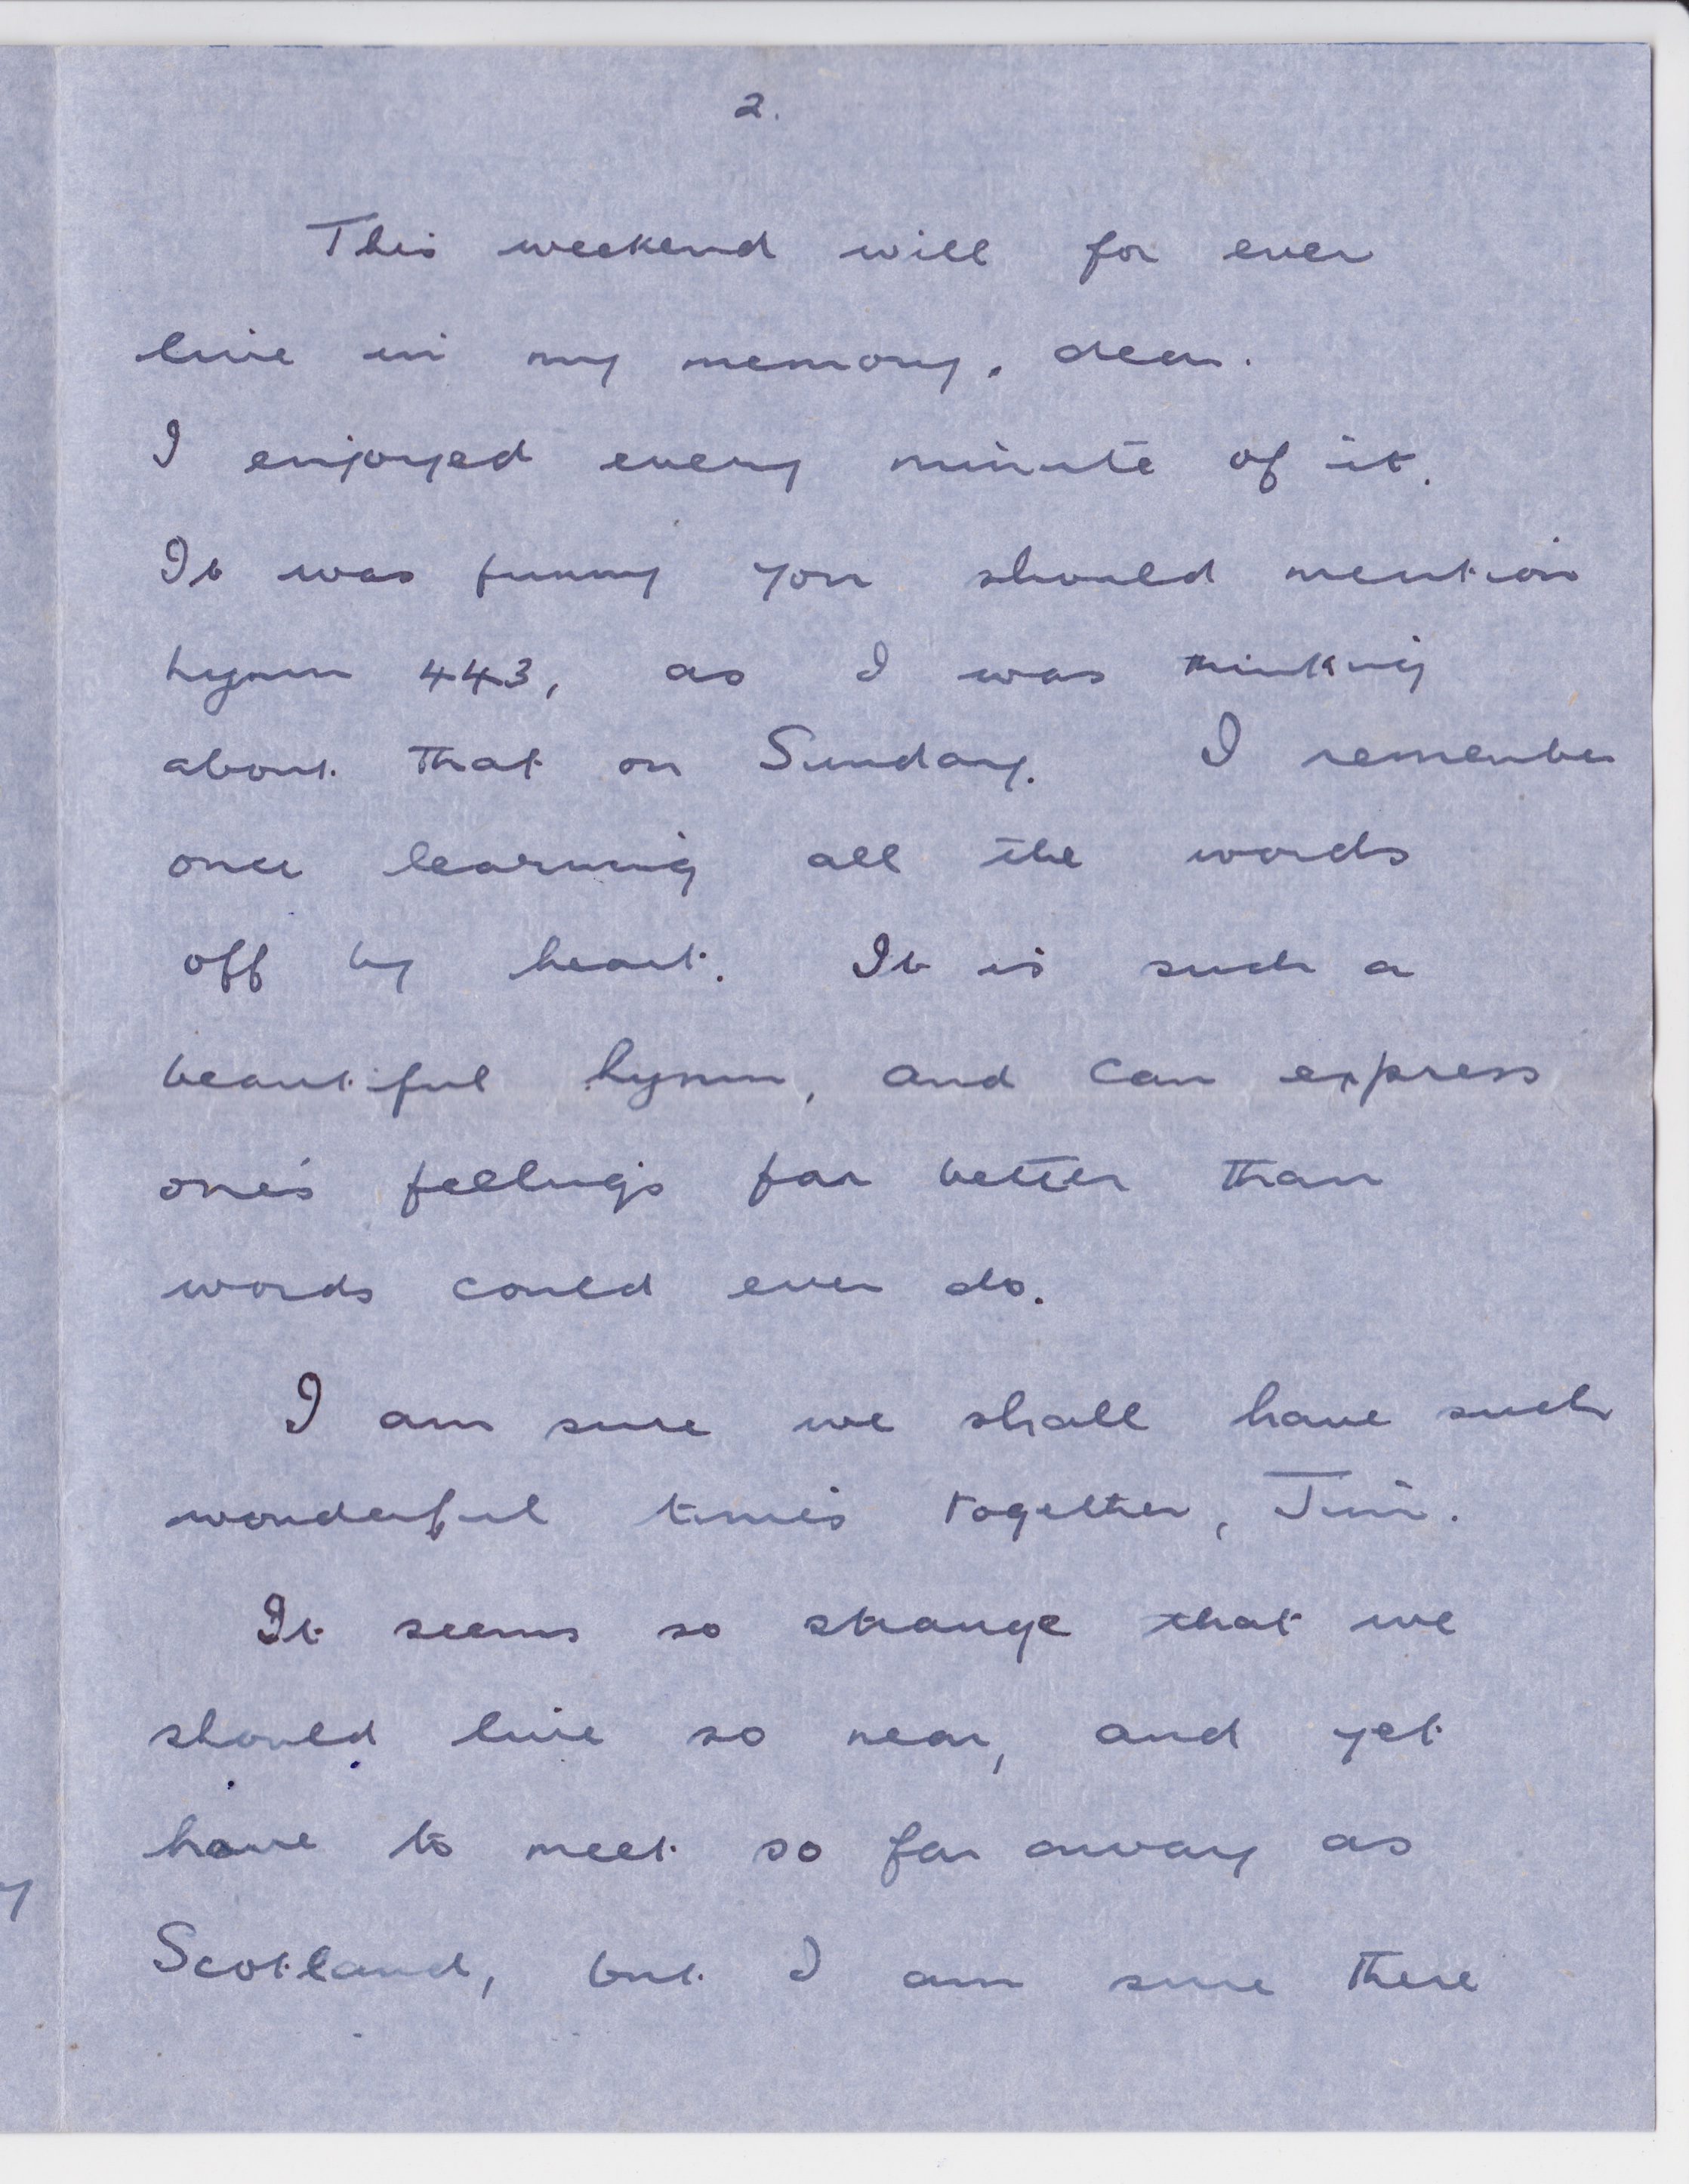 2.
This weekend will for ever
live in my memory, dear.
I enjoyed every minute of it.
It was funny you should mention
hymn 443, as I was thinking
about that on Sunday. I remember
once learning all the words
off by heart. It is such a
beautiful hymn, and can express
one's feelings far better than
words could ever do.
I am sure we shall have such
wonderful times together, Jim.
It seems so strange that we
should live so near, and yet
have to meet so far away as
Scotland, but I am sure there